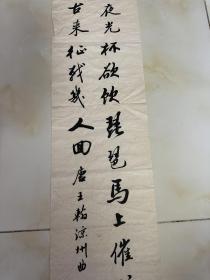 夜光杯欲饮琵琶馬上催
古来征战幾人回唐王翰凉州曲